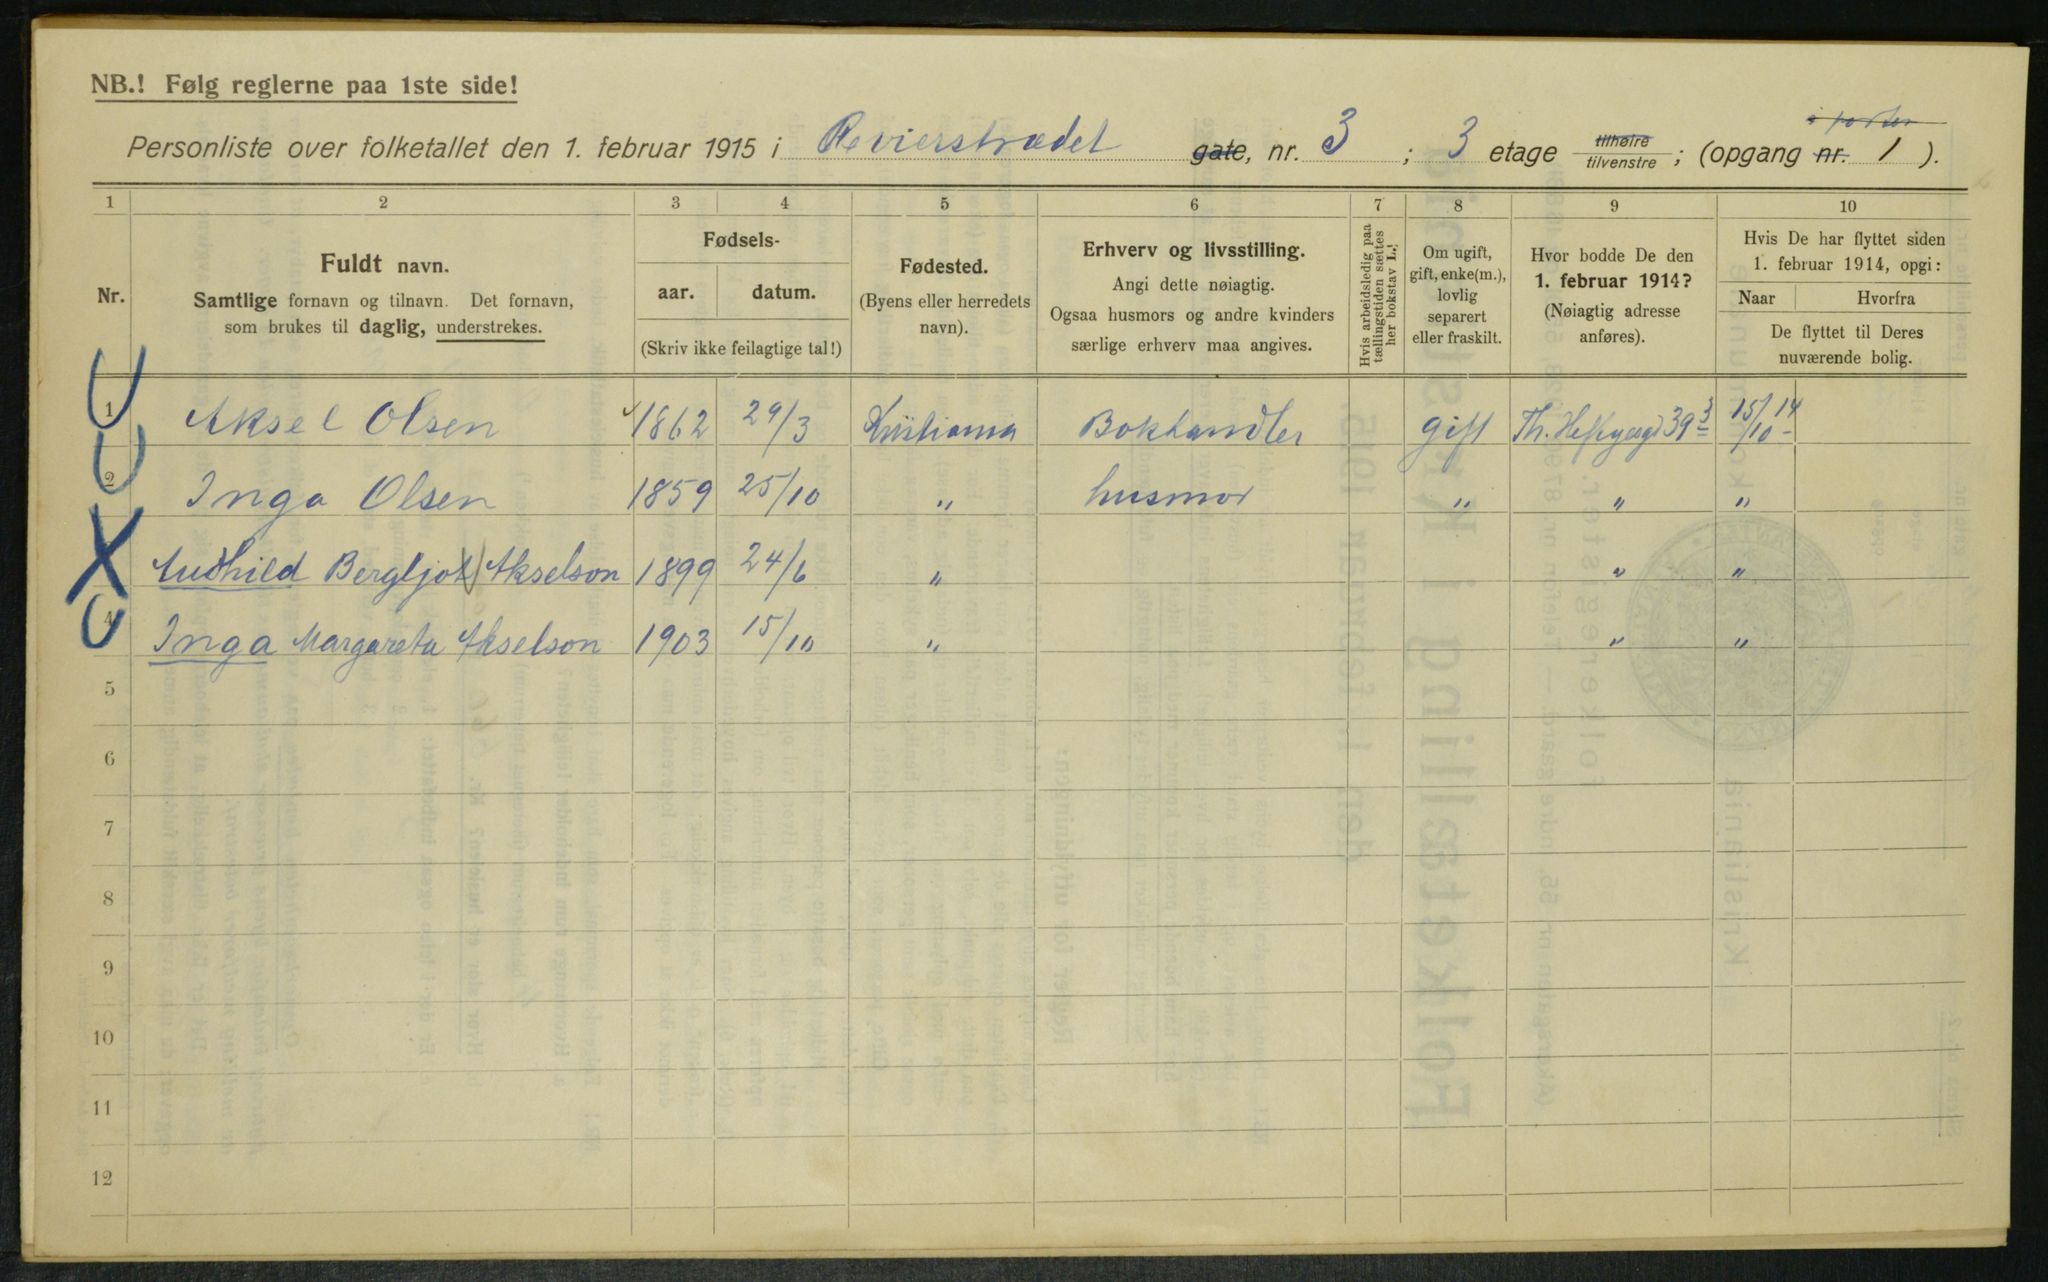 NB.! Følg reglerne paa 1ste side!
i porten
Personliste over folketallet den 1. februar 1915 i Revierstrædet gate, nr. 3 ; 3 etage tilhøire tilvenstre ; (opgang nr. 1 ).
1 2 3 4 5 6 7 8 9 10
Nr.
Fuldt navn.
Samtlige fornavn og tilnavn. Det fornavn,
som brukes til daglig, understrekes.
Fødsels-
aar. datum.
(Skriv ikke feilagtige tal!)
Fødested.
(Byens eller herredets
navn).
Erhverv og livsstilling.
Angi dette nøiagtig.
Ogsaa husmors og andre kvinders
særlige erhverv maa angives.
Hvis arbeidsledig paa
tællingstiden sættes
her bokstav L.!
Om ugift,
gift, enke(m.),
lovlig
separert
eller fraskilt.
Hvor bodde De den
1. februar 1914?
(Nøiagtig adresse
anføres).
Hvis De har flyttet siden
1. februar 1914, opgi:
Naar Hvorfra
De flyttet til Deres
nuværende bolig.
1 Aksel Olsen 1862 29/3 Kristiania Bokhandler gift Th. Heftyesgt 39 3 15/10 - 14
2 Inga Olsen 1859 25/10 " husmor " " "
Audhild Bergljot Akselson 1899 24/6 " " "
4 Inga Margareta Akselson 1903 15/10 " " "
5
6
7
8
9
10
11
12